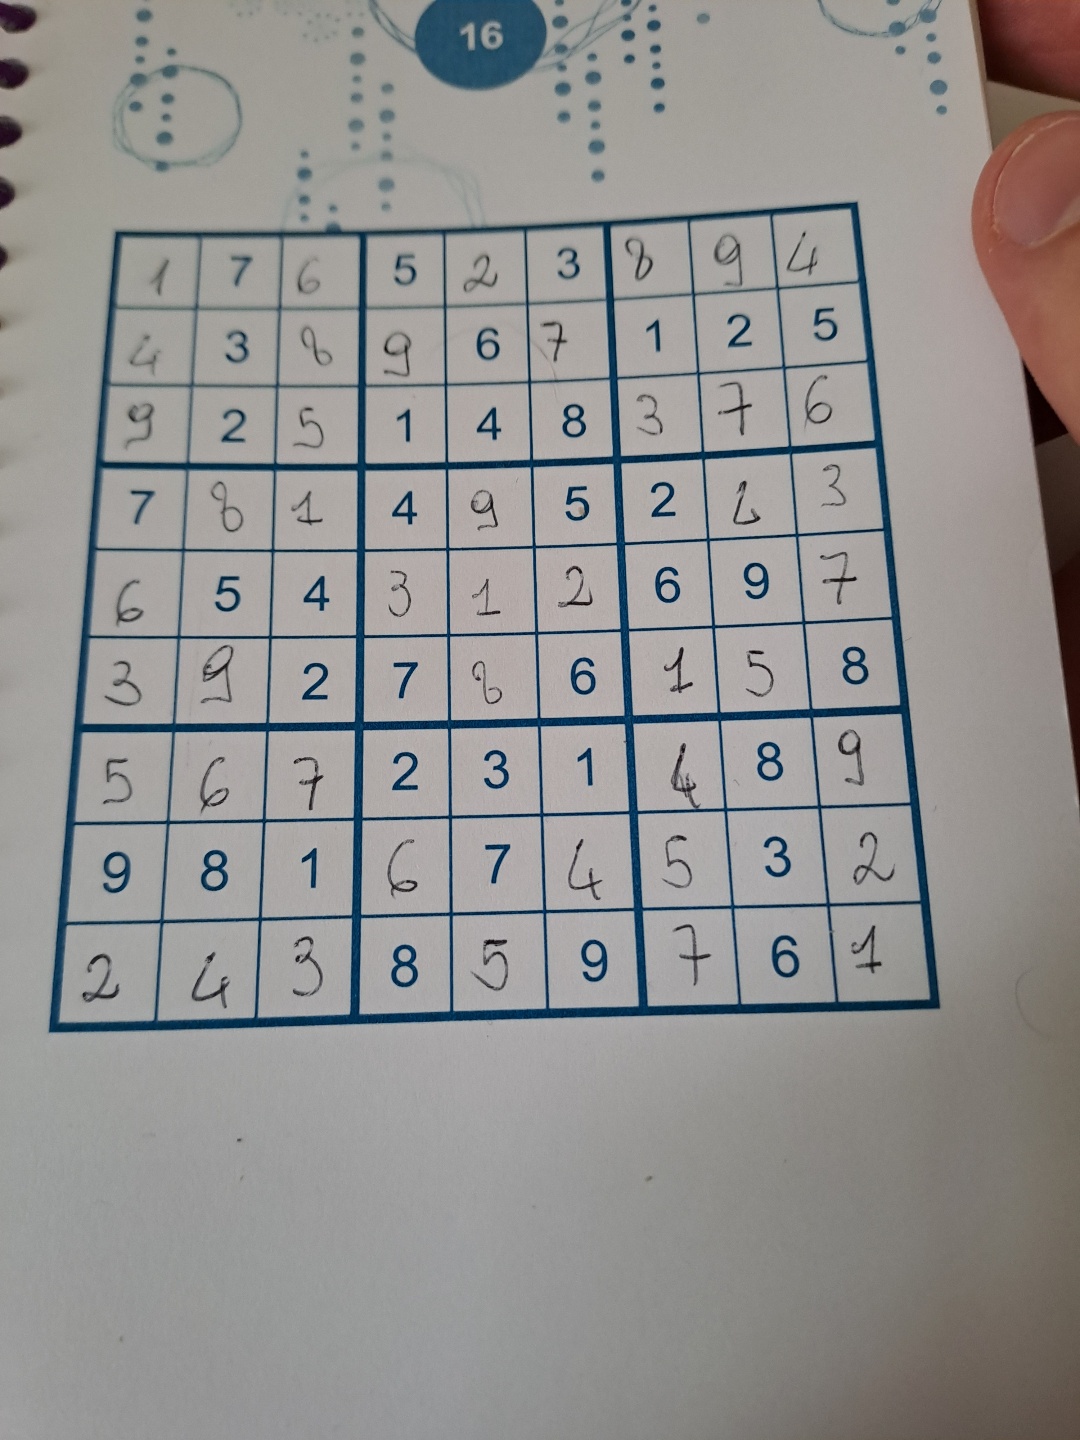 16
1 7 6 5 2 3 8 9 4
4 3 8 9 6 7 1 2 5
9 2 5 1 4 8 3 7 6
7 8 1 4 9 5 2 3
6 5 4 3 1 2 6 9 7
3 9 2 7 8 6 1 5 8
5 6 7 2 3 1 4 8 9
9 8 1 6 7 4 5 3 2
2 4 3 8 5 9 7 6 1